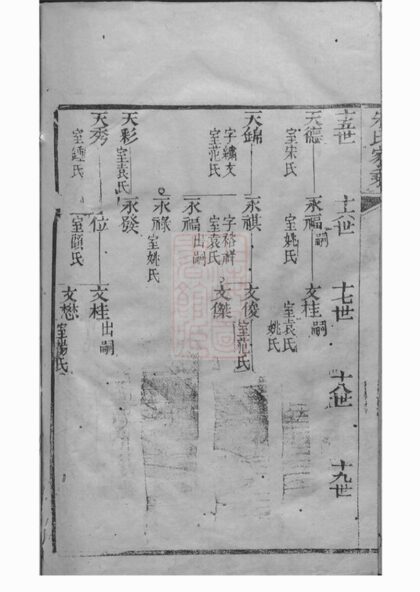 宋氏家乘
十五世 十六世 十七世 十八世 十九世
天德 室宋氏 永福 嗣 室姚氏 文桂 嗣 室袁氏 姚氏
天錦 字繡文 室范氏 永祺 字裕祥 室袁氏 文俊 室范氏
文傑
永福 出嗣
永祿 室姚氏
天彩 室袁氏 永發
天秀 室鍾氏 位 室顧氏 文桂 出嗣
文懋 室湯氏